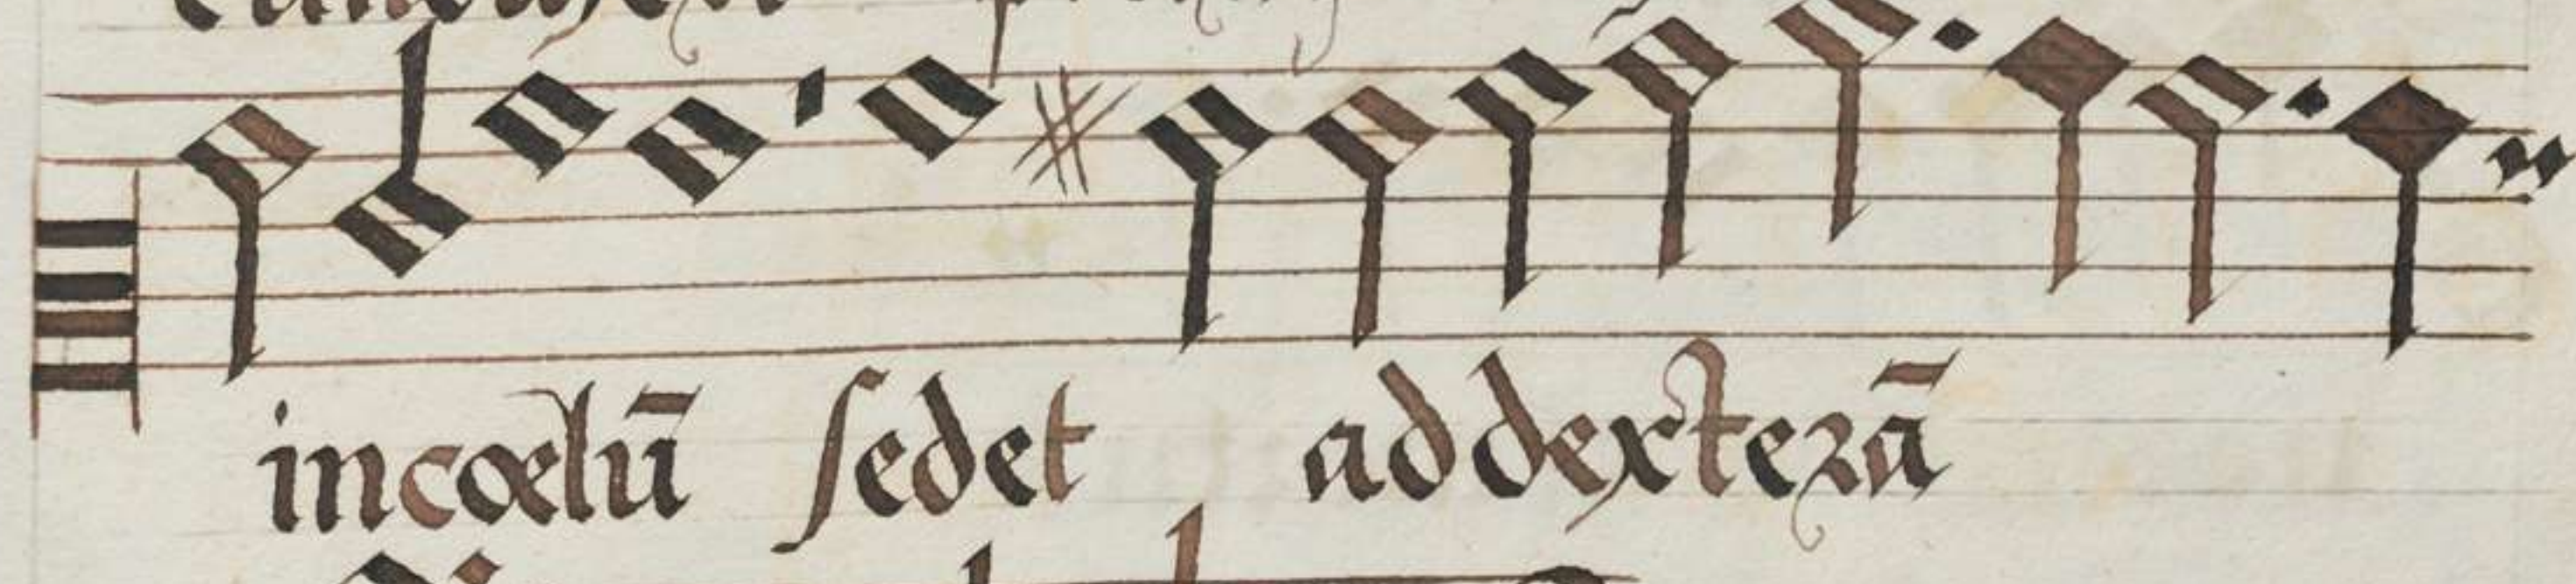 incœlū sedet addexterā